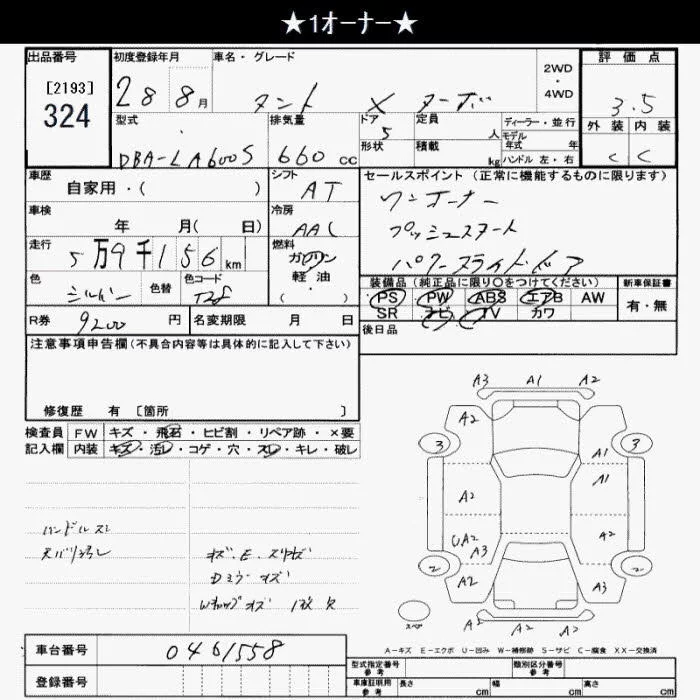 ★1ｵｰﾅｰ★
出品番号
[2193]
324
初度登録年月
28 8月
車名・グレード
タント X ターボ
2WD
・
4WD
評価点
3.5
外装 内装
C C
型式
DBA-LA600S
排気量
660 cc
ドア
5
形状
定員
人
積載
kg
ディーラー・並行
モデル
年式 年
ハンドル 左・右
車歴
自家用・( )
シフト
AT
車検
年 月( 日)
冷房
AAC
走行
5万9千156km
燃料
ガソリン
軽油
・
( )
色
シルバー
色替
色コード
T28
セールスポイント(正常に機能するものに限ります)
ワンオーナー
プッシュスタート
パワースライドドア
装備品(純正品に限り○をつけてください)
PS PW ABS エアB AW
SR ナビ TV カワ
新車保証書
有・無
後日品
R券 9200 円
名変期限 月 日
注意事項申告欄(不具合内容等は具体的に記入して下さい)
修復歴 有 [箇所 ]
検査員
記入欄
FW キズ・飛石・ヒビ割・リペア跡・×要
内装 キズ・汚レ・コゲ・穴・スレ・キレ・破レ
ハンドルスレ
天バリ汚レ
Dミラーキズ
A3 A1 A2
A2
3 3
A1
A1
A2
UA2
A3
A2
2 2
A2
A3
A2 A2
スペア
A-キズ E-エクボ U-凹み W-補修跡 S-サビ C-腐食 XX-交換済
車台番号 0461558
登録番号
型式指定番号
参考
類別区分番号
参考
車庫証明用
参考
長さ cm
幅 cm
高さ cm